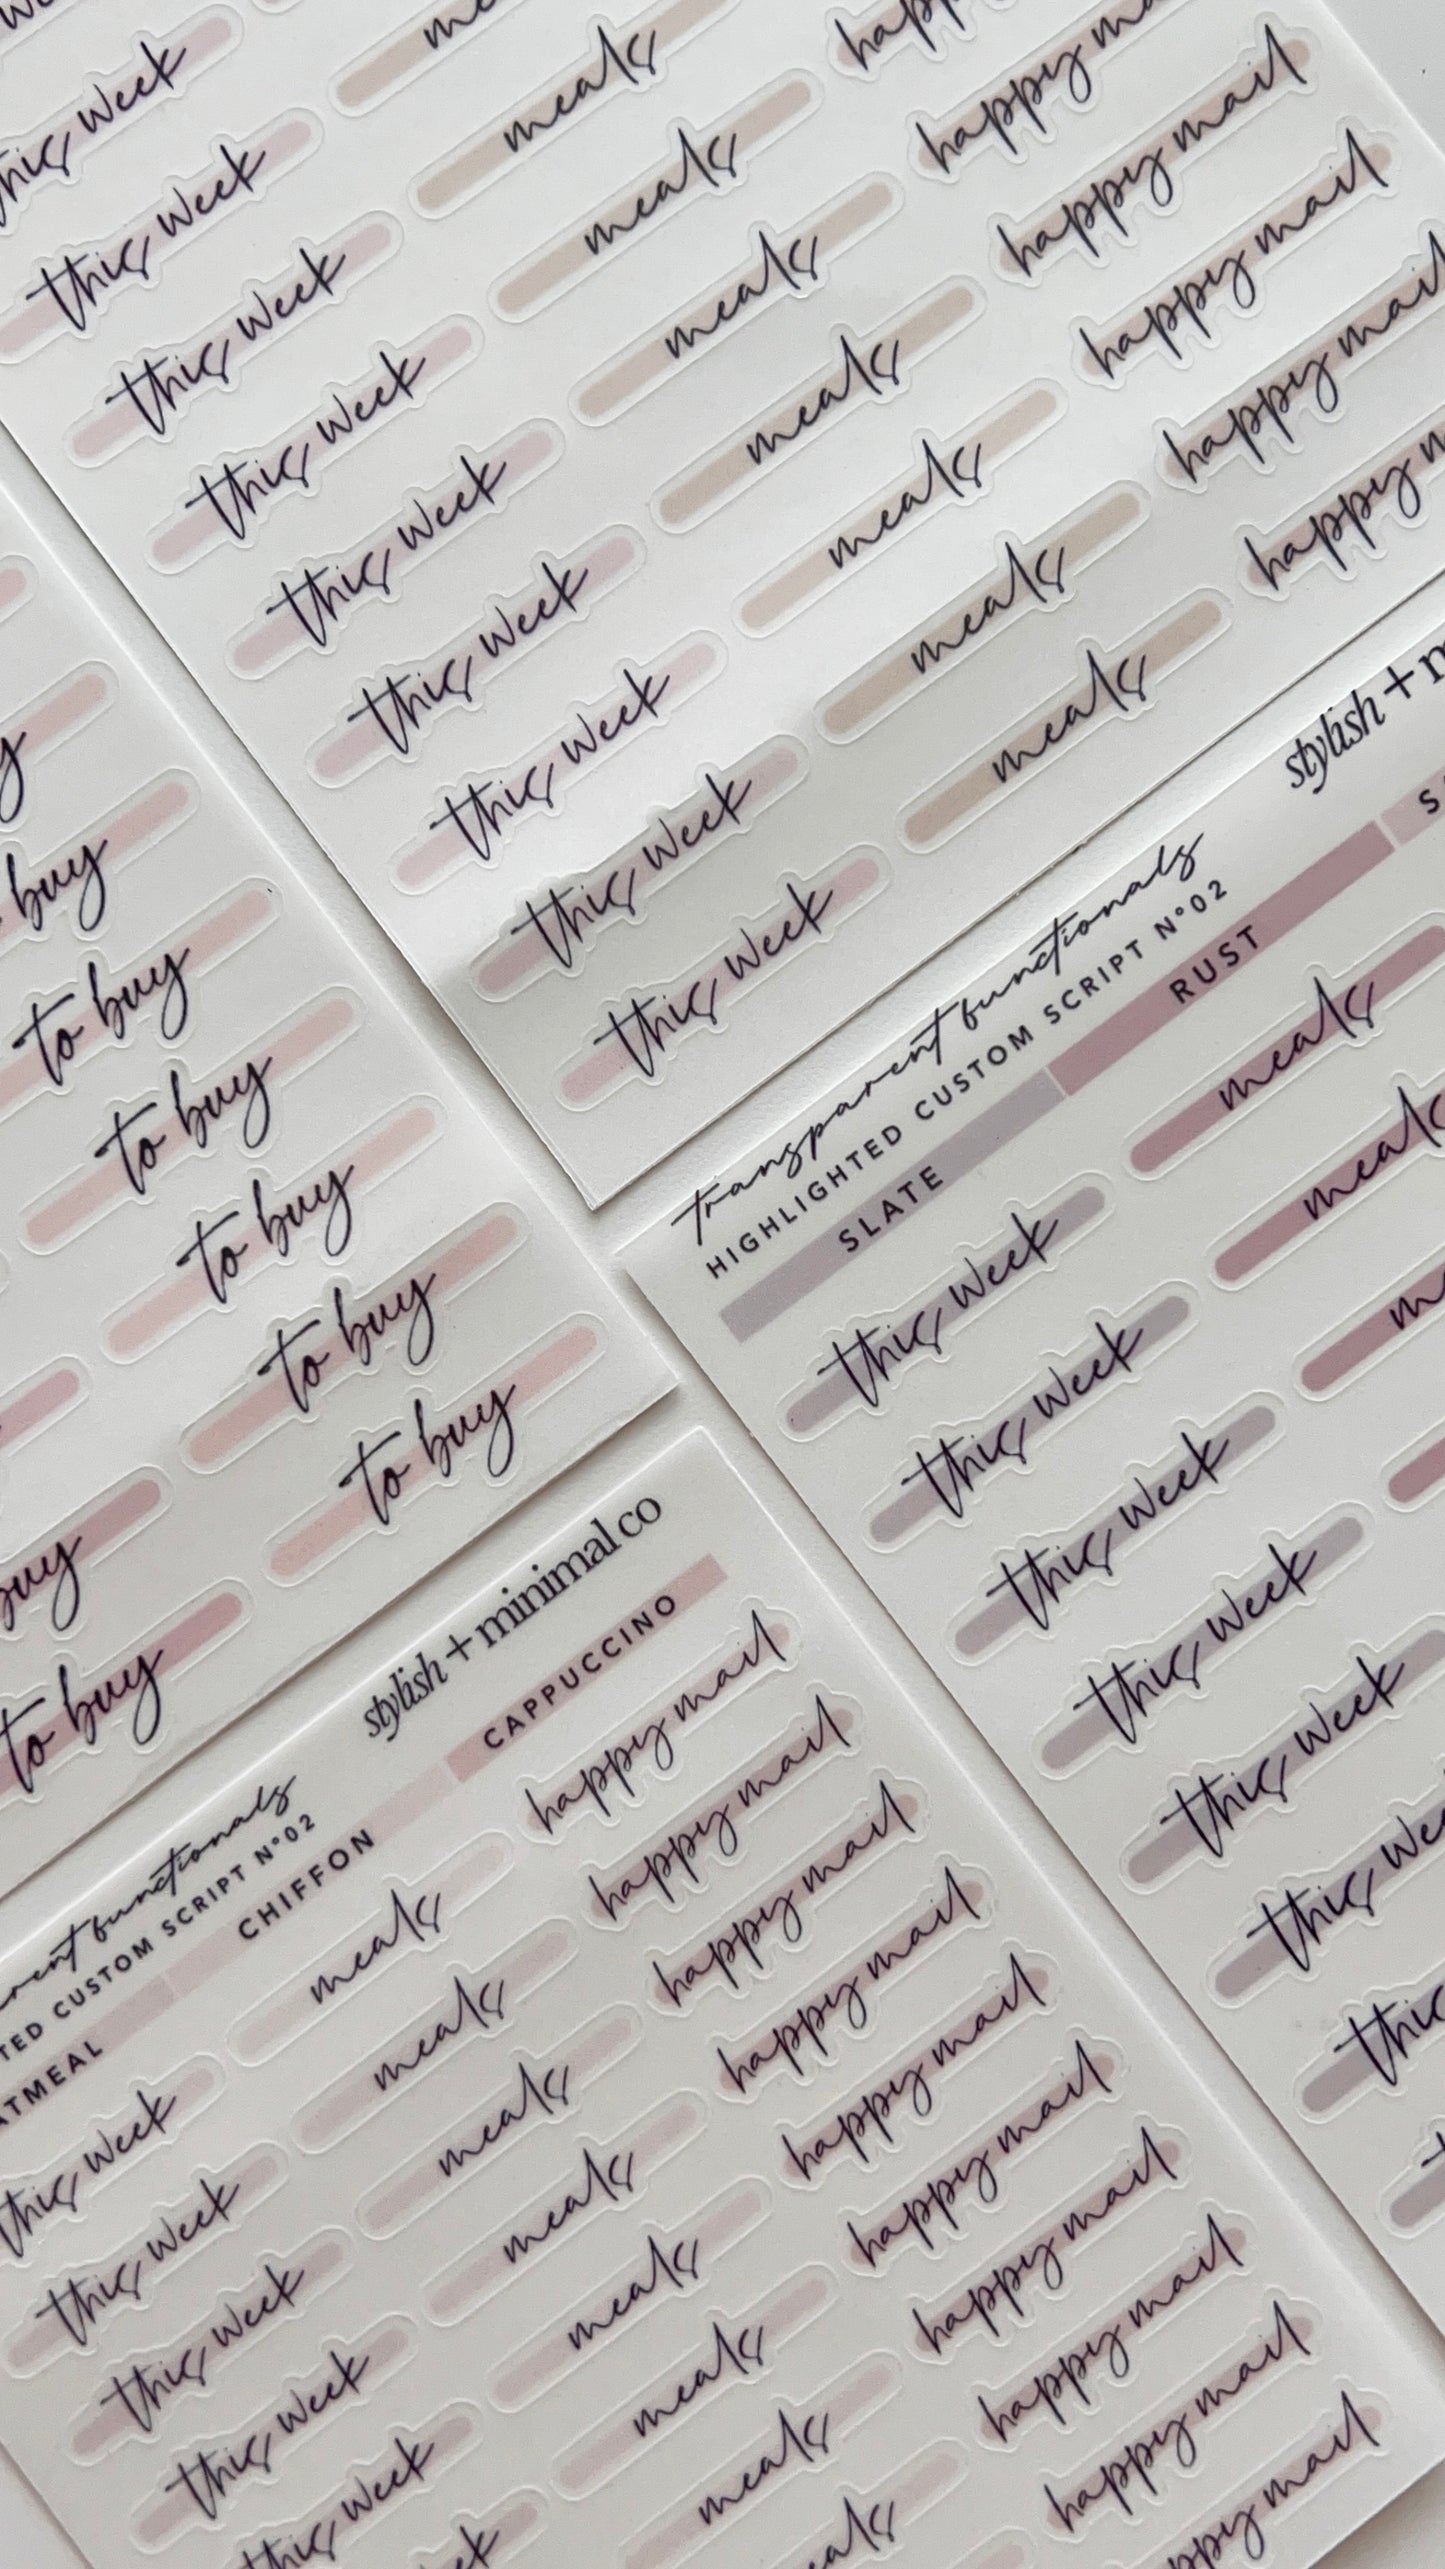 this week
this week
this week
this week
this week
this week
this week
this week
this week
meals
meals
meals
meals
meals
meals
meals
happy mail
happy mail
happy mail
happy mail
happy
to buy
to buy
to buy
to buy
to buy
to buy
buy
to buy
stylish +
transparent functionals
HIGHLIGHTED CUSTOM SCRIPT N°02
SLATE
RUST
this week
this week
this week
this week
this week
this
this
meals
meals
stylish + minimal co
functionals
CUSTOM SCRIPT N°02
CHIFFON
CAPPUCCINO
this week
this week
this week
this week
this week
meals
meals
meals
meals
meals
meals
meals
happy mail
happy mail
happy mail
happy mail
happy mail
happy mail
happy mail
happy mail
happy mail
mail